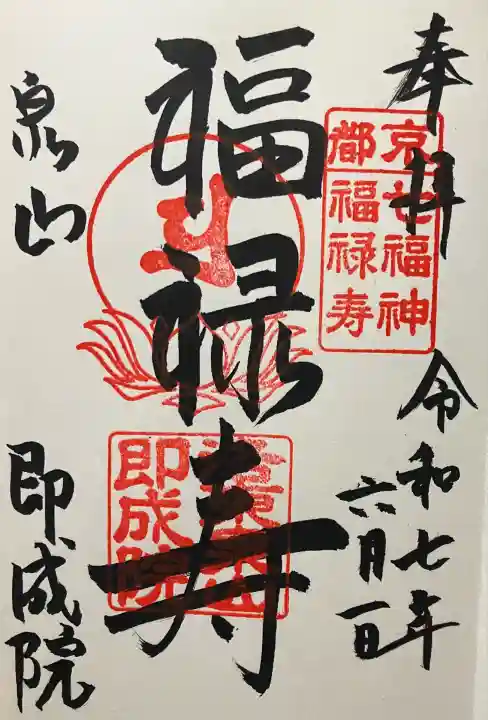 奉拝
令和七年
六月一日
京七福神
都福禄寿
福禄寿
即成院
泉山
即成院